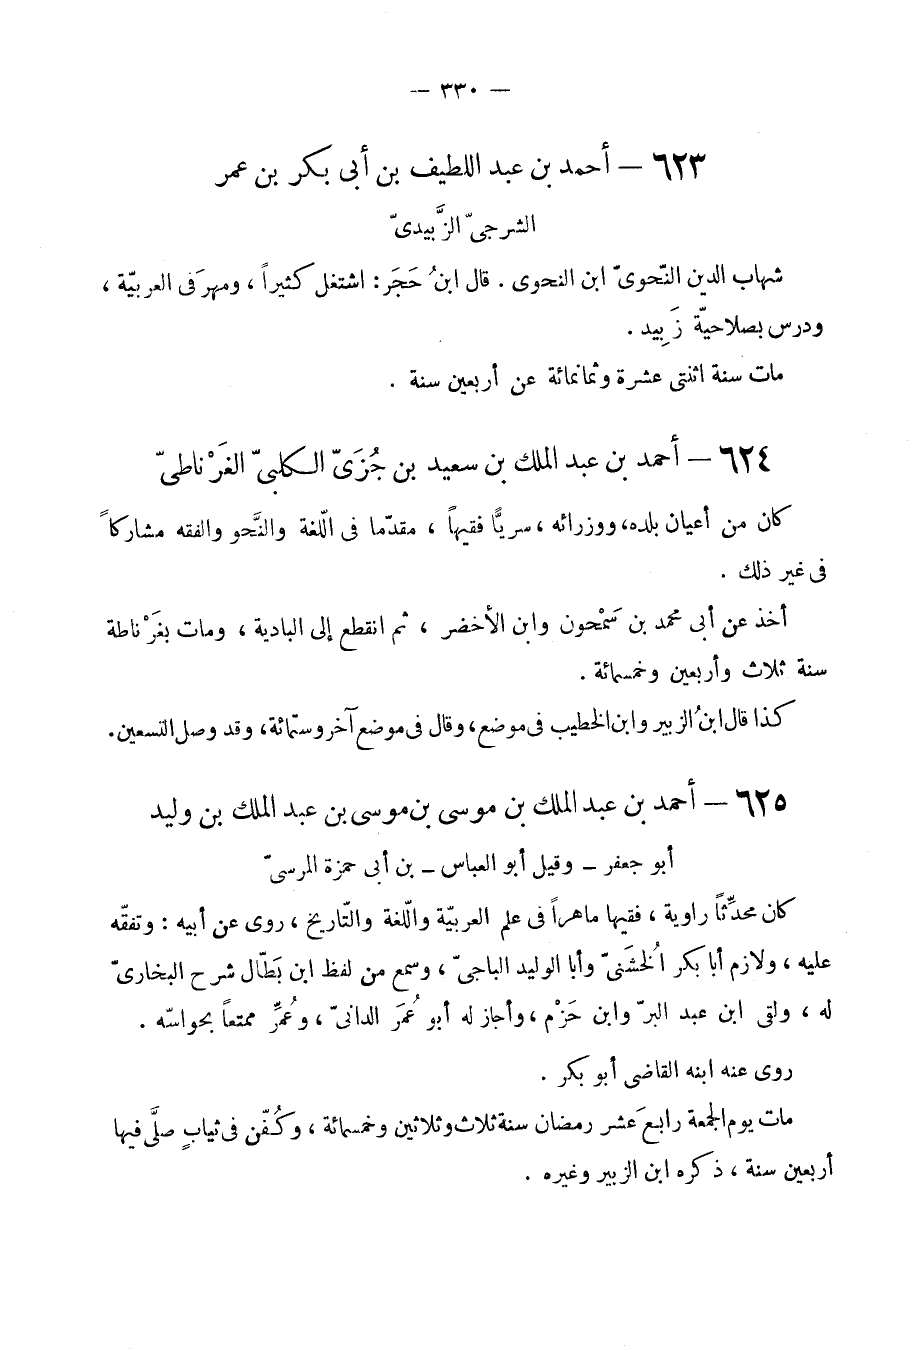 — ٣٣٠ —
٦٢٣ — أحمد بن عبد اللطيف بن أبى بكر بن عمر
الشرجىّ الزَّبيدىّ
شهاب الدين النّحوىّ ابن النحوى . قال ابنُ حَجَر: اشتغل كثيراً ، ومهرَ فى العربيّة ،
ودرس بصلاحيّة زَبِيد .
مات سنة اثنتى عشرة وثمانمائة عن أربعين سنة .
٦٢٤ — أحمد بن عبد الملك بن سعيد بن جُزَىّ الكلبىّ الغَرْناطىّ
كان من أعيان بلده، ووزرائه ، سريًّا فقيهاً ، مقدّما فى اللّغة والنَّحو والفقه مشاركاً
فى غير ذلك .
أخذ عن أبى محمد بن سَمْحون وابن الأخضر ، ثم انقطع إلى البادية ، ومات بغَرْناطة
سنة ثلاث وأربعين وخمسمائة .
كذا قال ابنُ الزبير وابن الخطيب فى موضع، وقال فى موضع آخر وستّمائة، وقد وصل التسعين.
٦٢٥ — أحمد بن عبد الملك بن موسى بن موسى بن عبد الملك بن وليد
أبو جعفر – وقيل أبو العباس – بن أبى حمزة المرسىّ
كان محدِّثاً راوية ، فقيها ماهراً فى علم العربيّة واللّغة والتّاريخ ، روى عن أبيه : وتفقّه
عليه ، ولازم أبا بكر الُخشَنىّ وأبا الوليد الباجىّ ، وسمع من لفظ ابن بَطّال شرح البخارىّ
له ، ولقى ابن عبد البرّ وابن حَزْم ، وأجاز له أبو عُمَر الدانىّ ، وعُمِّر ممتعاً بحواسّه .
روى عنه ابنه القاضى أبو بكر .
مات يوم الجمعة رابعَ عشر رمضان سنة ثلاث وثلاثين وخمسمائة ، وكُفّن فى ثيابٍ صلَّى فيها
أربعين سنة ، ذكره ابن الزبير وغيره .